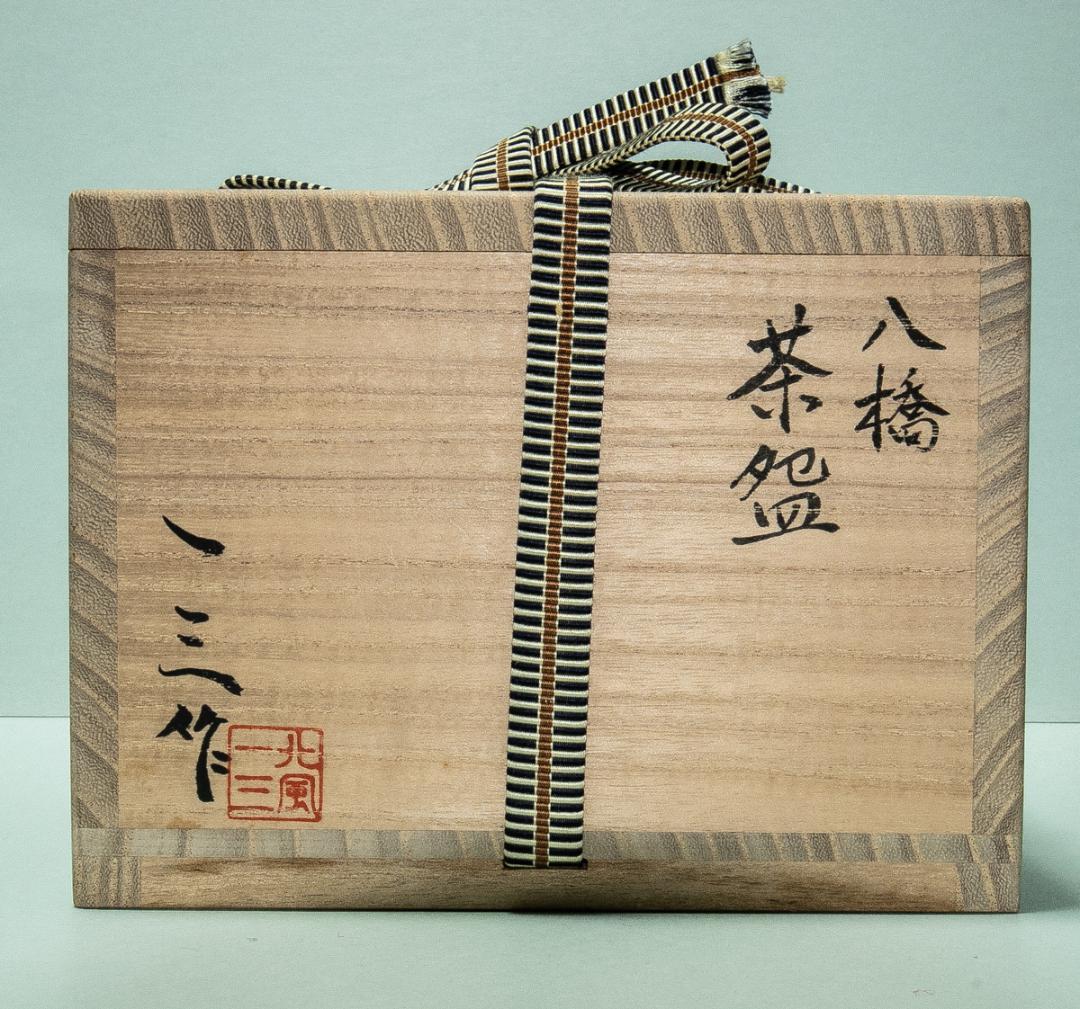 八橋
茶盌
一三作
北風
一三